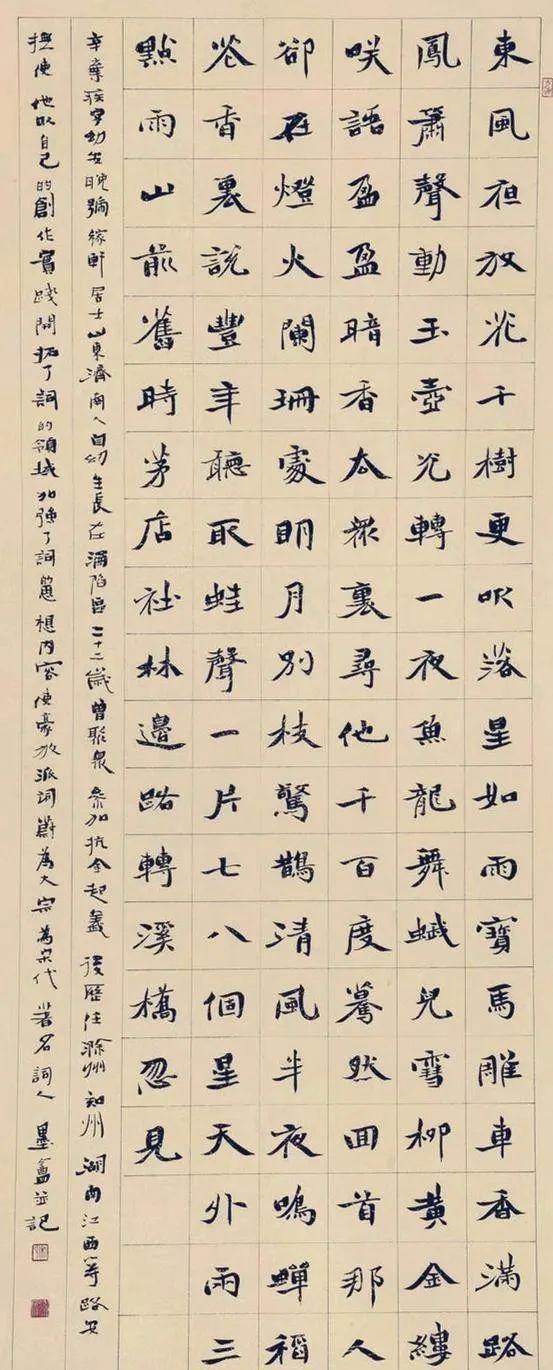 東風亱放花千樹更吹落星如雨寶馬雕車香滿路
鳳簫聲動玉壺光轉一夜魚龍舞蛾兒雪柳黃金縷
咲語盈盈暗香去眾裏尋他千百度驀然回首那人
卻在燈火闌珊處明月別枝驚鵲清風半夜鳴蟬稻
花香裏說豐年聽取蛙聲一片七八個星天外雨三
點雨山前舊時茅店社林邊路轉溪橋忽見
辛棄疾字幼安晚號稼軒居士山東濟南人自幼生長在淪陷區二十二歲曾聚眾參加抗金起義後歷任滁州知州湖南江西等路安
撫使他以自己的創作實踐開拓了詞的領域加強了詞思想內容使豪放派詞蔚為大宗為宋代著名詞人墨盦並記